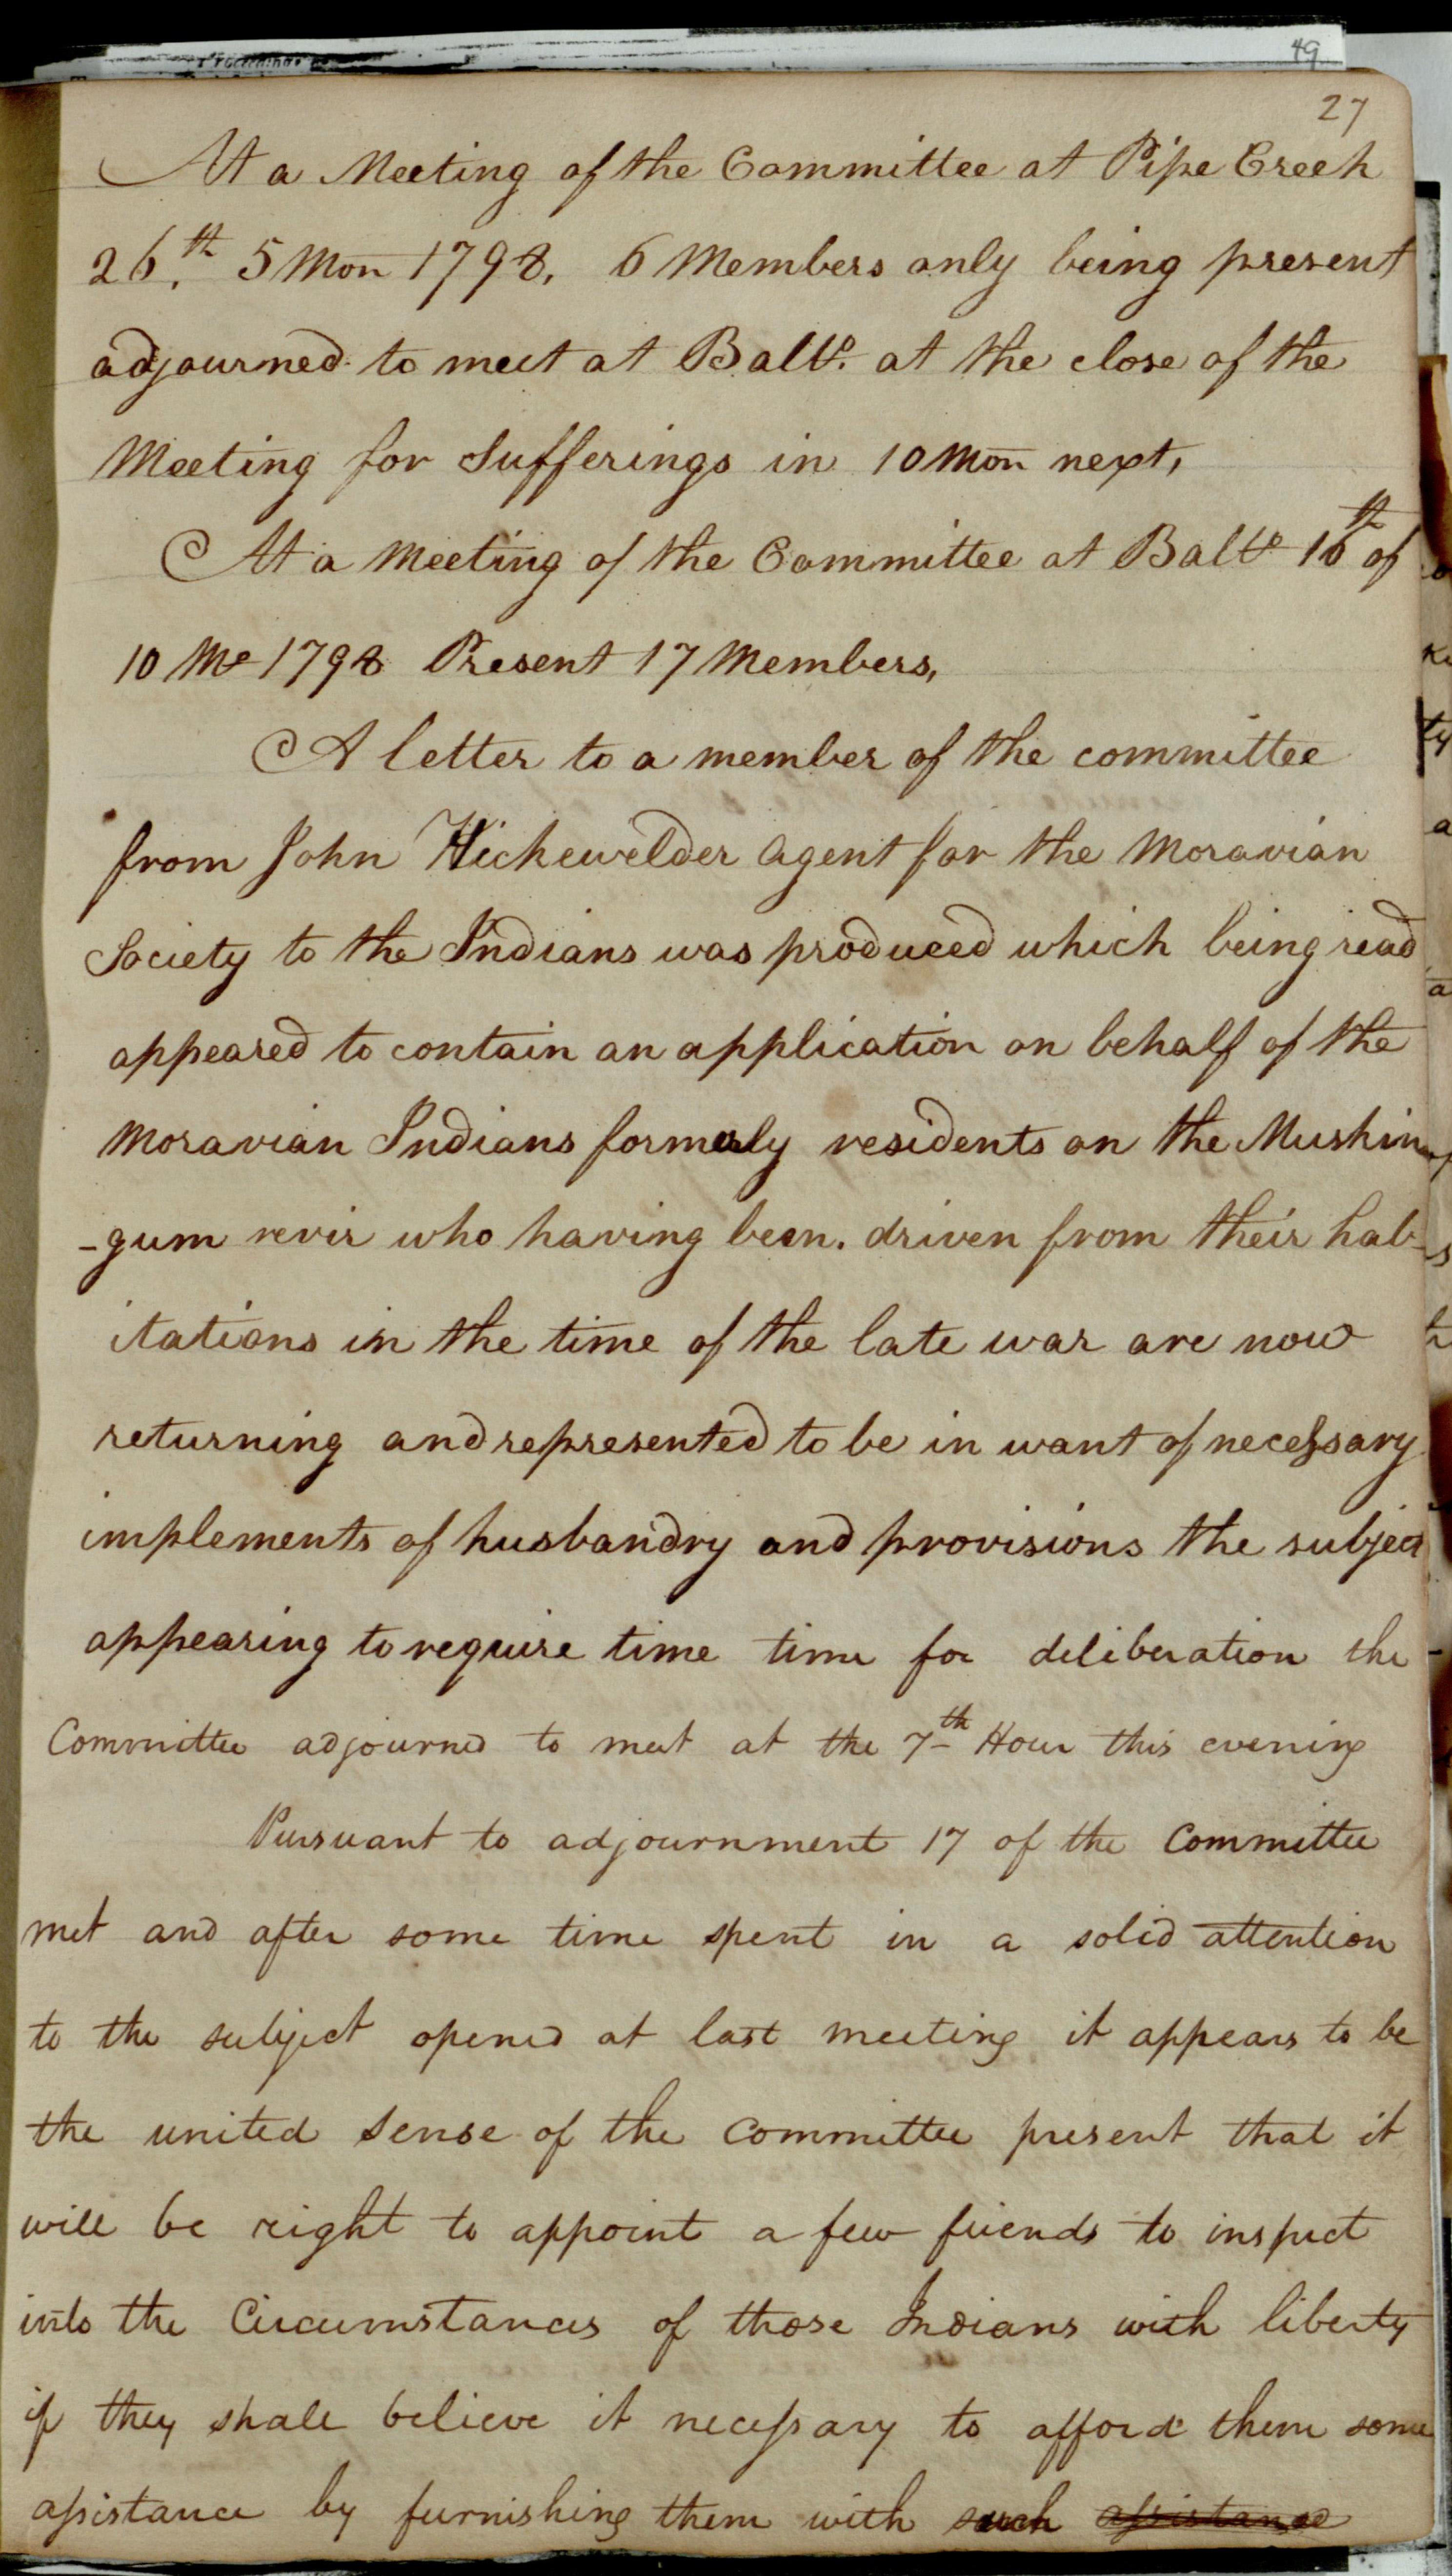 49
27
At a Meeting of the Committee at Pipe Creek
26th. 5 Mon 1798, 6 Members only being present
adjourned to meet at Balto. at the close of the
Meeting for Sufferings in 10 Mon next,
At a Meeting of the Committee at Balto 16th of
10 Mo 1798 Present 17 Members,
A letter to a member of the committee
from John Hickewelder Agent for the Moravian
Society to the Indians was produced which being read
appeared to contain an application on behalf of the
Moravian Indians formerly residents on the Muskin
-gum revir who having been. driven from their hab-
itations in the time of the late war are now
returning and represented to be in want of necessary
implements of husbandry and provisions the subject
appearing to require time time for deliberation the
Committee adjourned to meet at the 7th Hour this evening
Pursuant to adjournment 17 of the Committee
met and after some time spent in a solid attention
to the subject opened at last meeting it appears to be
the united sense of the Committee present that it
will be right to appoint a few friends to inspect
into the Circumstances of those Indians with liberty
if they shall believe it necessary to afford them some
assistance by furnishing them with such assistance